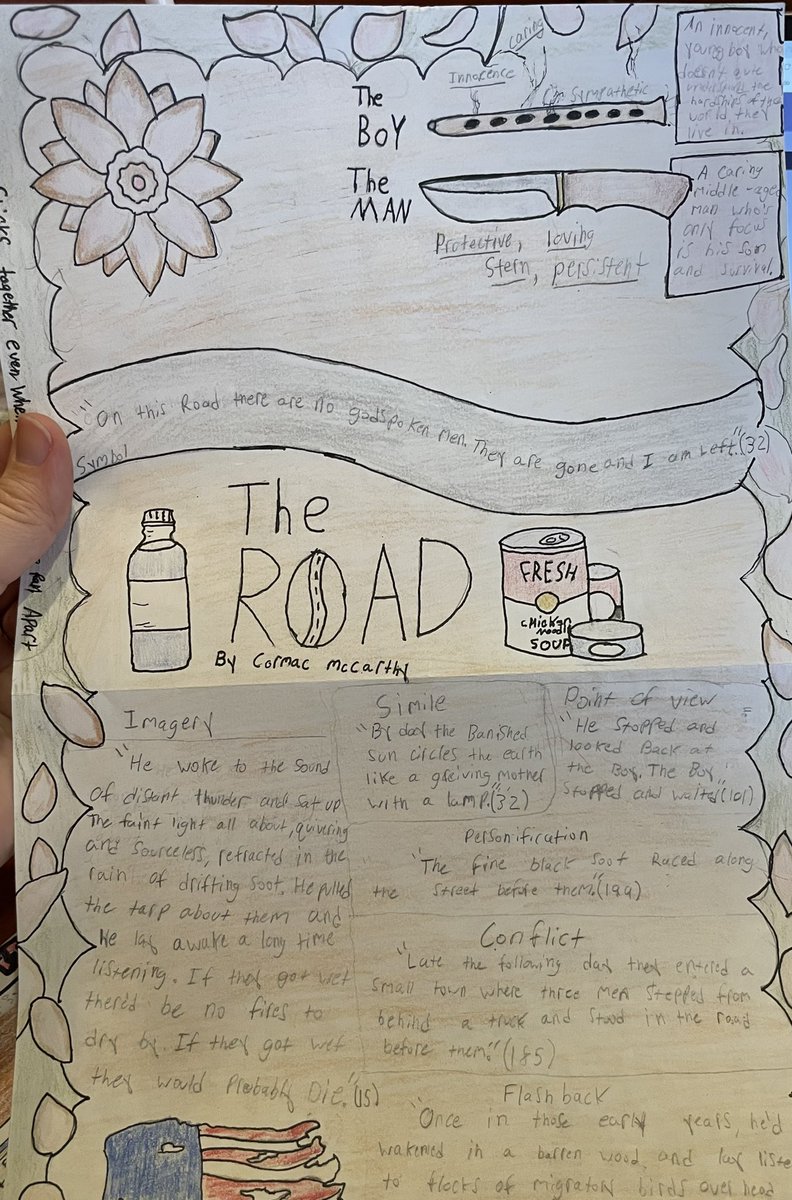 Innocence
caring
Sympathetic
The
BOY
An innocent,
young boy who
doesn't quite
understand the
hardships of the
world, they
live in.
The
MAN
Protective, loving
Stern, persistent
A caring
middle-aged
man who's
only focus
is his son
and survival.
together even whe
Apart
"On this Road there are no godspoken men. They are gone and I am Left."(32)
Symbol
The
ROAD
By Cormac mccarthy
FRESH
CHICKEN
Noodle
SOUP
Imagery
"He woke to the sound
Of distant thunder and sat up
The faint light all about, quivering
and sourceless, refracted in the
rain of drifting soot. He pulled
the tarp about them and
He lay awake a long time
listening. If they got wet
there'd be no fires to
dry by. If they got wet
they would Probably Die."(15)
Simile
"By day the Banished
sun circles the earth
like a greiving mother
with a lamp."(32)
Point of view
"He Stopped and
looked Back at
the Boy. The Boy
Stopped and waited"(101)
Personification
"The fine black soot Raced along
the street before them."(199)
Conflict
"Late the following day they entered a
small town where three men stepped from
behind a truck and stood in the road
before them."(185)
Flash back
"Once in those early years, he'd
wakened in a barren wood and lay liste
to flocks of migratory birds over head